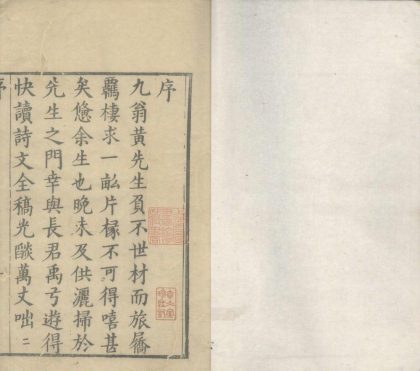 序
九翁黄先生負不世材而旅屩
羈棲求一畝片椽不可得嘻甚
矣憊余生也晚未及供灑掃於
先生之門幸與長君禹弓遊得
快讀詩文全稿光燄萬丈咄二
序